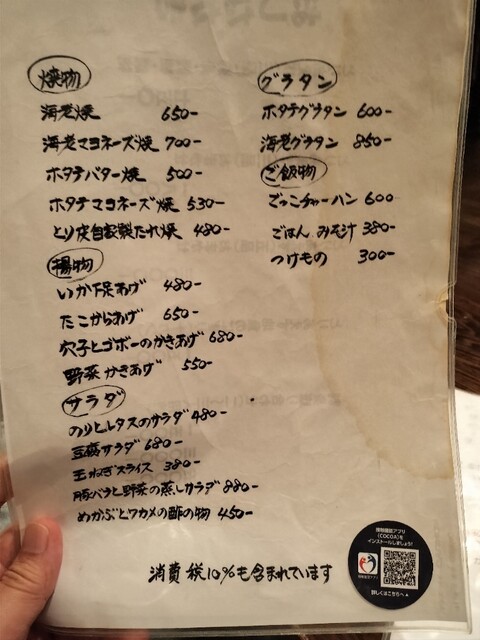 焼物
海老焼 650-
海老マヨネーズ焼 700-
ホタテバター焼 500-
ホタテマヨネーズ焼 530-
とり皮自家製たれ焼 480-
揚物
いか下足あげ 480-
たこからあげ 650-
穴子とゴボーのかきあげ 680-
野菜かきあげ 550-
サラダ
のりとレタスのサラダ 480-
豆腐サラダ 680-
玉ねぎスライス 380-
豚バラと野菜の蒸しサラダ 880-
めかぶとワカメの酢の物 450-
グラタン
ホタテグラタン 600-
海老グラタン 850-
ご飯物
でっこチャーハン 600-
ごはん みそ汁 380-
つけもの 300-
消費税10%も含まれています
接触確認アプリ
(COCOA)を
インストールしましょう!
接触確認アプリ
詳しくはこちらへ▲